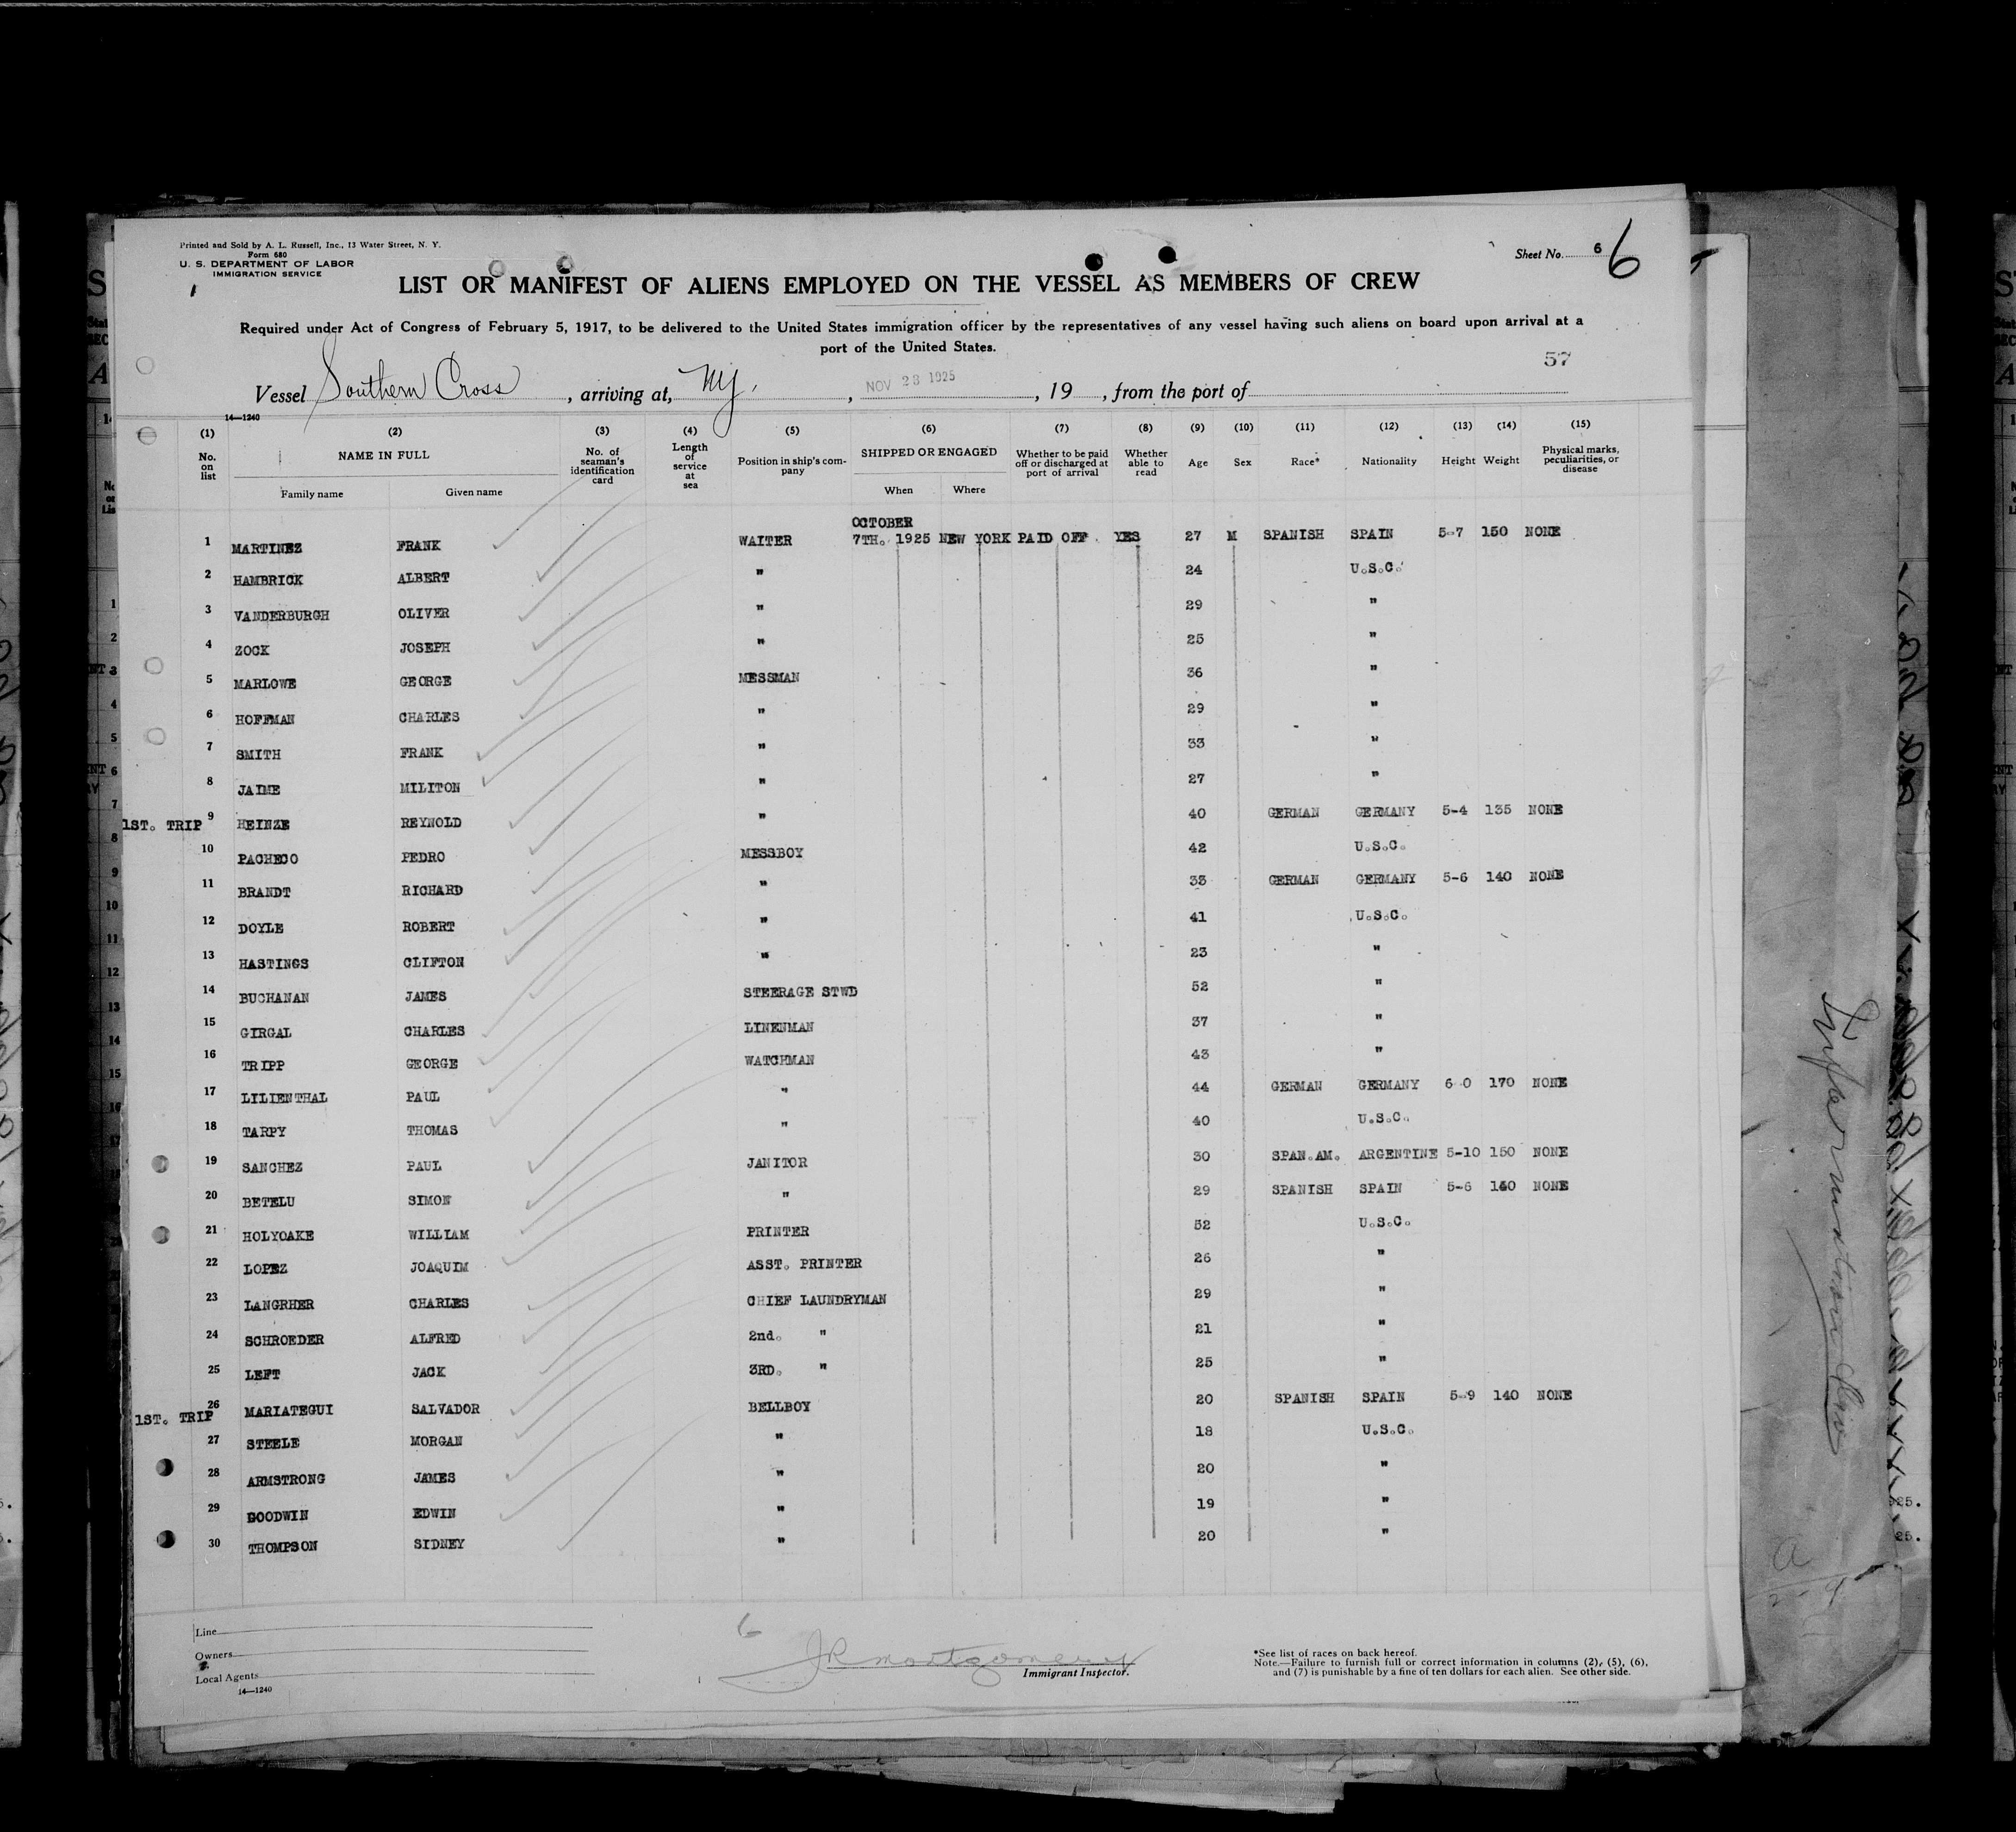 Printed and Sold by A. L. Russell, Inc., 13 Water Street, N. Y.
Form 680
U. S. DEPARTMENT OF LABOR
IMMIGRATION SERVICE
Sheet No. 6 6
LIST OR MANIFEST OF ALIENS EMPLOYED ON THE VESSEL AS MEMBERS OF CREW
Required under Act of Congress of February 5, 1917, to be delivered to the United States immigration officer by the representatives of any vessel having such aliens on board upon arrival at a
port of the United States.
57
Vessel Southern Cross, arriving at, NY., NOV 23 1925, 19, from the port of
14—1240
(1) (2) (3) (4) (5) (6) (7) (8) (9) (10) (11) (12) (13) (14) (15)
No. on list NAME IN FULL Family name Given name No. of seaman's identification card Length of service at sea Position in ship's company SHIPPED OR ENGAGED When Where Whether to be paid off or discharged at port of arrival Whether able to read Age Sex Race* Nationality Height Weight Physical marks, peculiarities, or disease
OCTOBER
1 MARTINEZ FRANK WAITER 7TH. 1925 NEW YORK PAID OFF YES 27 M SPANISH SPAIN 5-7 150 NONE
2 HAMBRICK ALBERT " 24 U.S.C.
3 VANDERBURGH OLIVER " 29 "
4 ZOCK JOSEPH " 25 "
5 MARLOWE GEORGE MESSMAN 36 "
6 HOFFMAN CHARLES " 29 "
7 SMITH FRANK " 33 "
8 JAIME MILITON " 27 "
1ST. TRIP 9 HEINZE REYNOLD " 40 GERMAN GERMANY 5-4 135 NONE
10 PACHECO PEDRO MESSBOY 42 U.S.C.
11 BRANDT RICHARD " 33 GERMAN GERMANY 5-6 140 NONE
12 DOYLE ROBERT " 41 U.S.C.
13 HASTINGS CLIFTON " 23 "
14 BUCHANAN JAMES STEERAGE STWD 52 "
15 GIRGAL CHARLES LINENMAN 37 "
16 TRIPP GEORGE WATCHMAN 43 "
17 LILIENTHAL PAUL " 44 GERMAN GERMANY 6-0 170 NONE
18 TARPY THOMAS " 40 U.S.C.
19 SANCHEZ PAUL JANITOR 30 SPAN.AM. ARGENTINE 5-10 150 NONE
20 BETELU SIMON " 29 SPANISH SPAIN 5-6 140 NONE
21 HOLYOAKE WILLIAM PRINTER 52 U.S.C.
22 LOPEZ JOAQUIM ASST. PRINTER 26 "
23 LANGRHER CHARLES CHIEF LAUNDRYMAN 29 "
24 SCHROEDER ALFRED 2nd. " 21 "
25 LEFT JACK 3RD. " 25 "
1ST. TRIP 26 MARIATEGUI SALVADOR BELLBOY 20 SPANISH SPAIN 5-9 140 NONE
27 STEELE MORGAN " 18 U.S.C.
28 ARMSTRONG JAMES " 20 "
29 GOODWIN EDWIN " 19 "
30 THOMPSON SIDNEY " 20 "
Line
Owners
Local Agents
14—1240
6
JR Montgomery
Immigrant Inspector.
*See list of races on back hereof.
Note.—Failure to furnish full or correct information in columns (2), (5), (6),
and (7) is punishable by a fine of ten dollars for each alien. See other side.